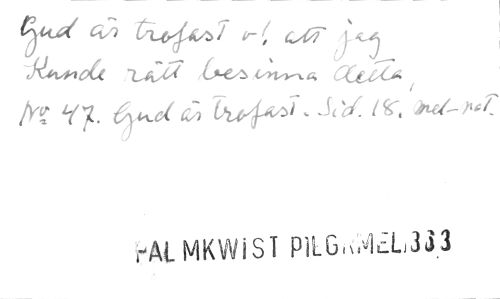 Gud är trofast o!. att jag
Kunde rätt besinna detta,
No 47. Gud är trofast. Sid. 18. mel-not.
PALMKWIST PILGRMEL